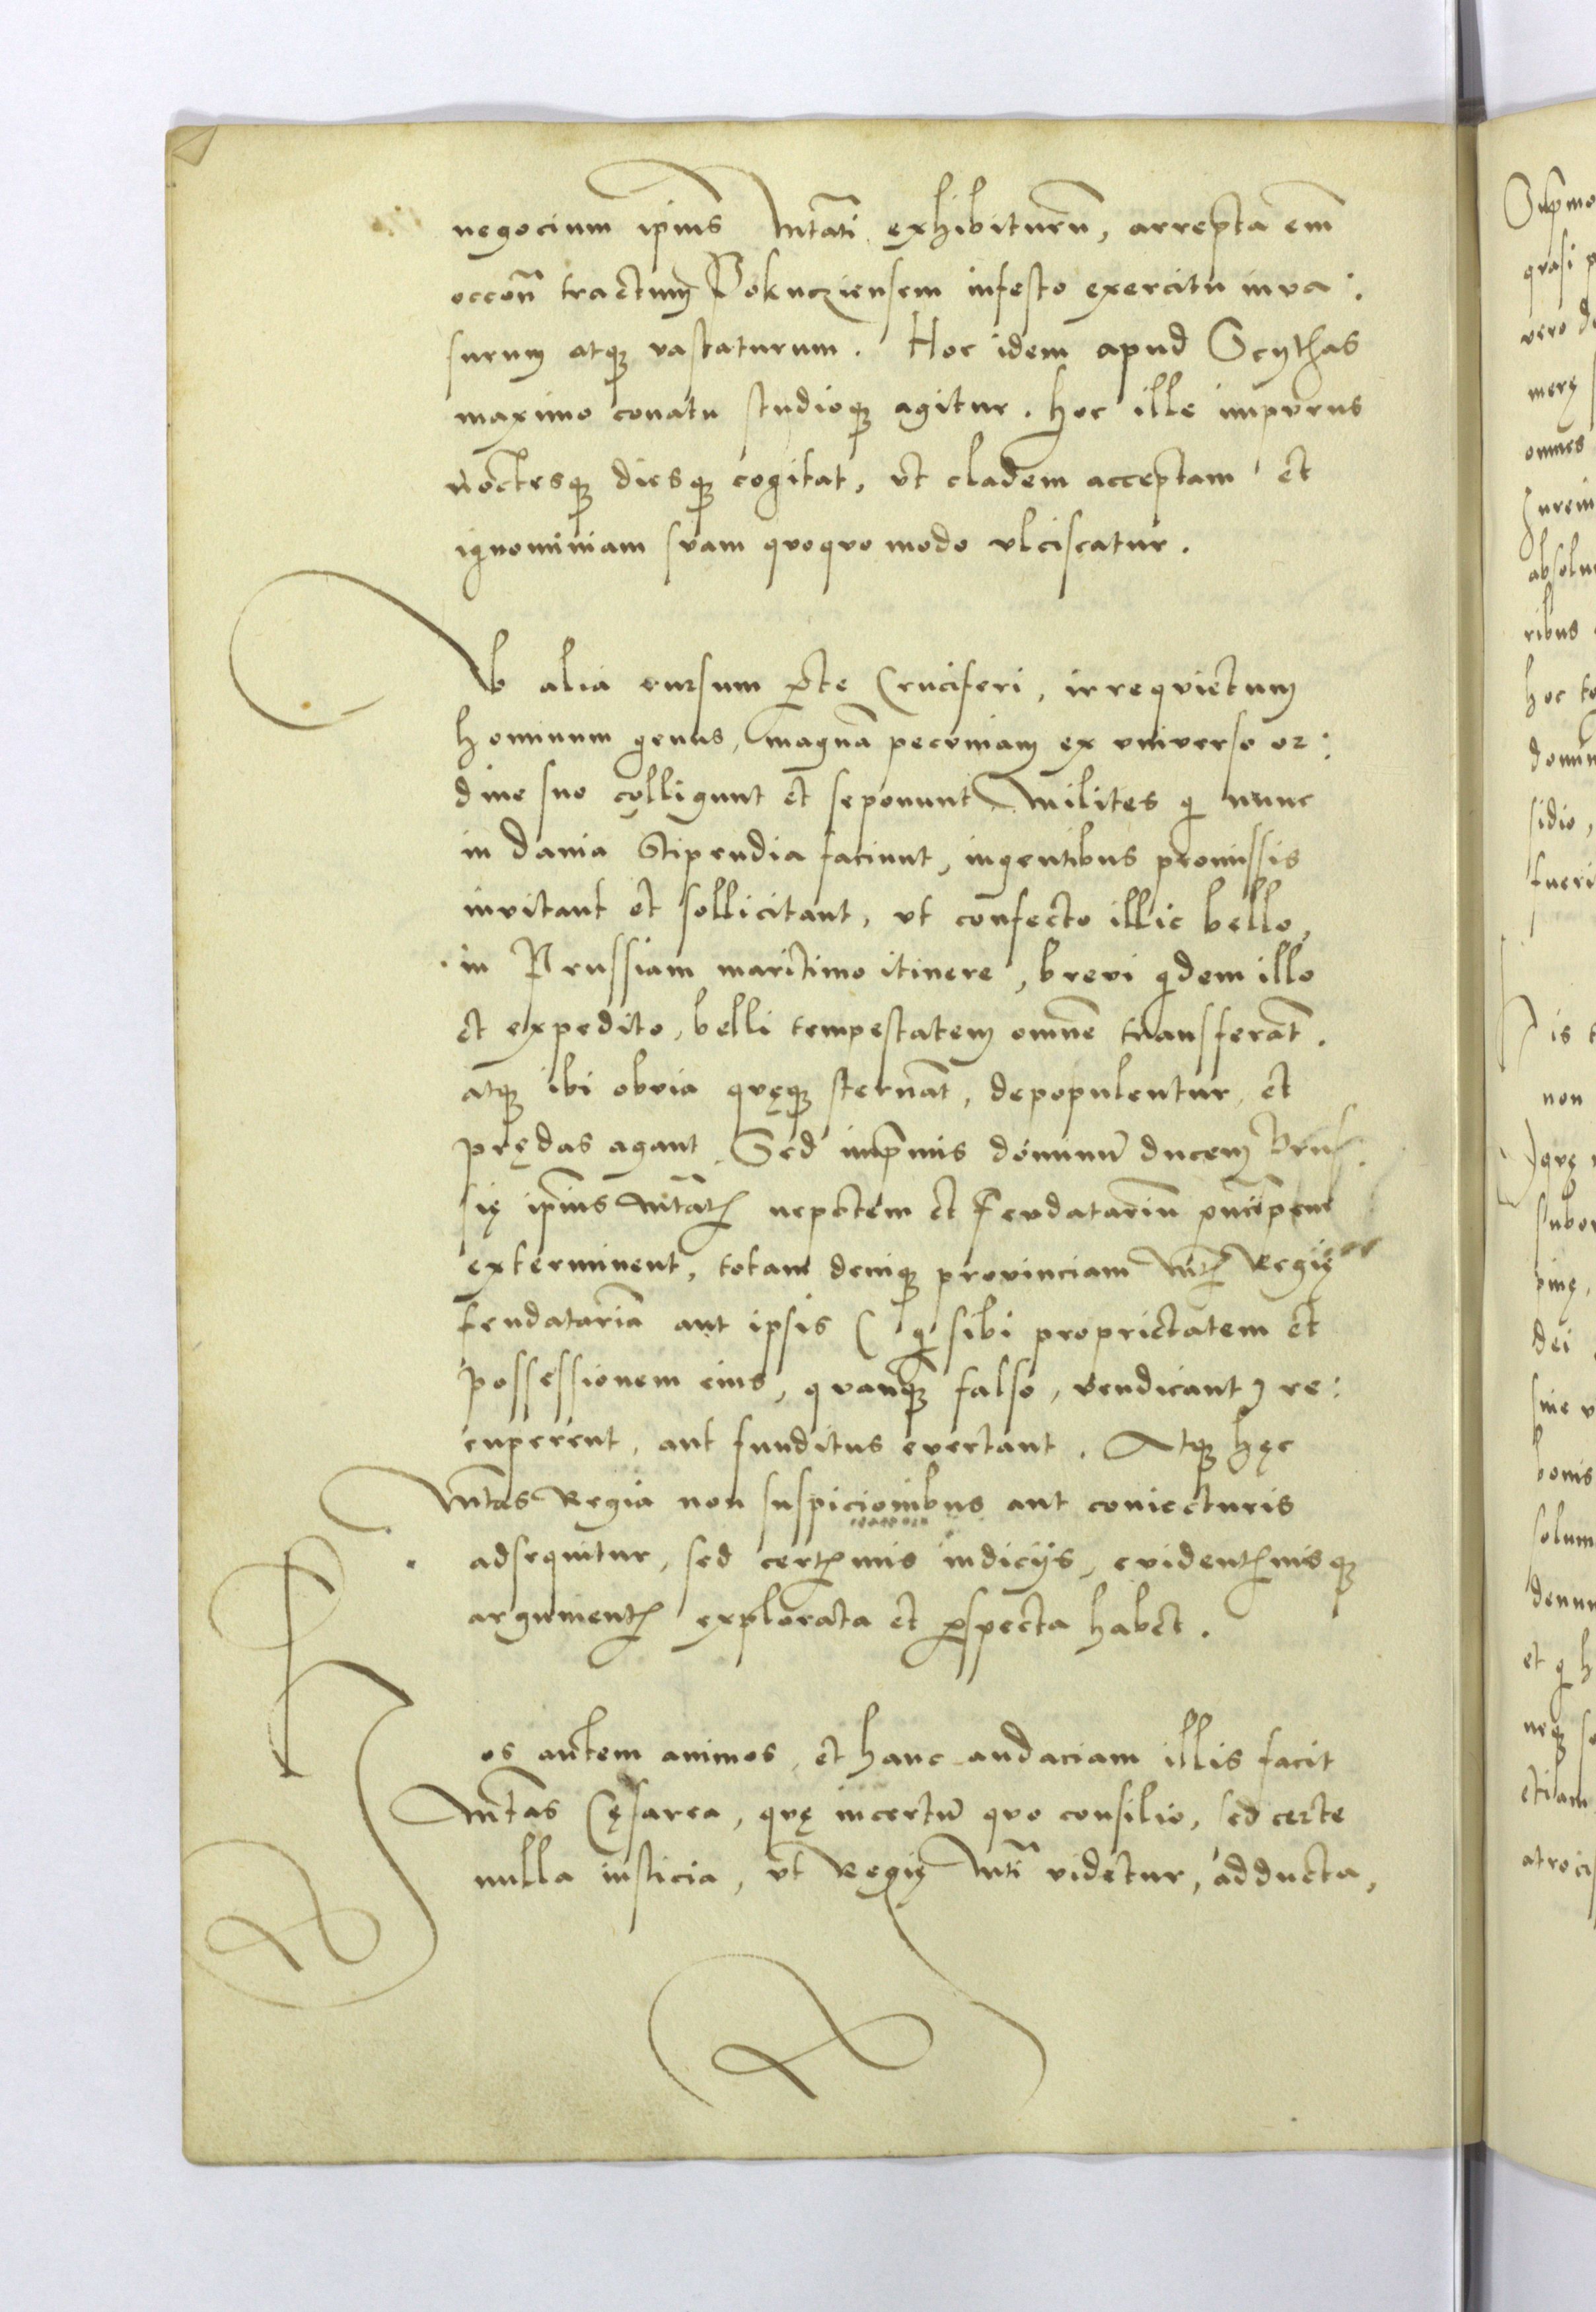 negocium ipius Mtati exhibiturũ, arrepta em̃
occoñ tractum Pokucziensem infesto exercitu inva:
surum atq; vastaturum. Hoc idem apud Scythas
maximo conatu studioq; agitur. hoc ille impurus
noctesq; diesq; cogitat, vt cladem acceptam et
ignominiam suam quoquo modo vlciscatur.
Ab alia rursum pte Cruciferi, irrequietum
hominum genus, magnã pecuniam ex vniverso or:
dine suo colligunt et seponunt, Milites q nunc
in dania Stipendia faciunt, ingentibus promissis
invitant et sollicitant, vt confecto illic bello,
in Prussiam maritimo itinere, brevi qdem illo
et expedito, belli tempestatem omnẽ transferãt.
atq; ibi obvia quęq; sternãt, depopulentur, et
prędas agant. Sed imp̃mis dominũ ducem Prus:
się ipius Mtãt nepotem et feudatariũ principem
exterminent, totam deniq; provinciam Mt Regię
feudatariã aut ipsis ( q sibi proprietatem et
possessionem eius, quanq; falso, vendicant) re:
cuperent, aut funditus evertant. Atq; hęc
Mtas Regia non suspicionibus aut coniecturis
adsequitur, sed certmis indicijs, evidentmisq;
argument explorata et pspecta habet.
Hos autem animos, et hanc audaciam illis facit
Mtas Cęsarea, quę incertũ quo consilio, sed certe
nulla iusticia, vt Regię Mti videtur, adducta,